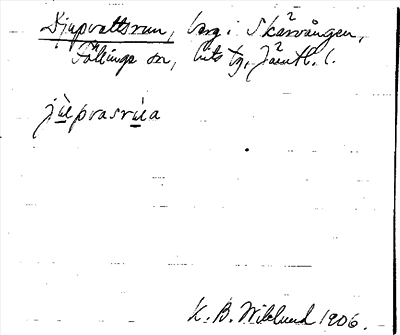 Djupvattsrun, berg i Skärvången,
Föllinge sn, Lits tg, Jämtl. l.
jùepvasrùea
K. B. Wiklund 1906.